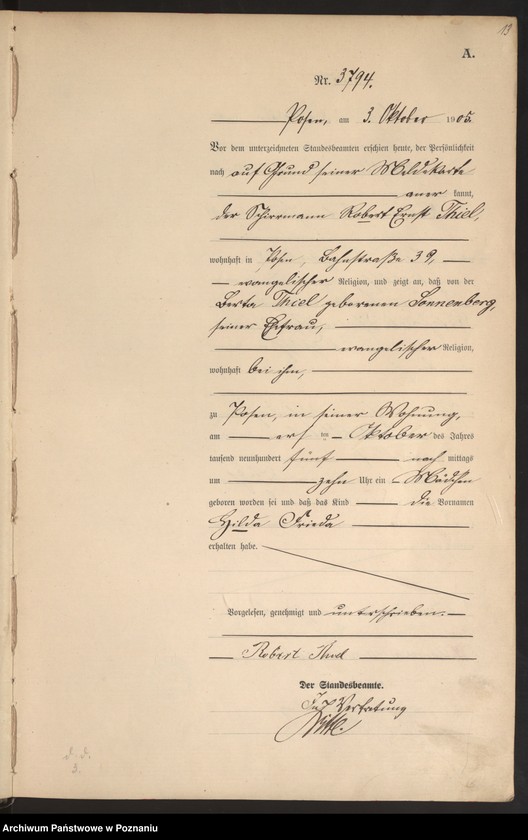 13
A.
Nr. 3794.
Posen, am 3. Oktober 1905.
Vor dem unterzeichneten Standesbeamten erschien heute, der Persönlichkeit
nach auf Grund seiner Meldekarte
aner kannt,
der Schirrmann Robert Ernst Thiel,
wohnhaft in Posen, Bahnstraße 39,
evangelischer Religion, und zeigt an, daß von der
Berta Thiel geborenen Sonnenberg,
seiner Ehefrau,
evangelischer Religion,
wohnhaft bei ihm,
zu Posen, in seiner Wohnung,
am ersten Oktober des Jahres
tausend neunhundert fünf nach mittags
um zehn Uhr ein Mädchen
geboren worden sei und daß das Kind die Vornamen
Hilda Frieda
erhalten habe.
Vorgelesen, genehmigt und unterschrieben.
Robert Thiel
Der Standesbeamte.
In Vertretung
Archiwum Państwowe w Poznaniu